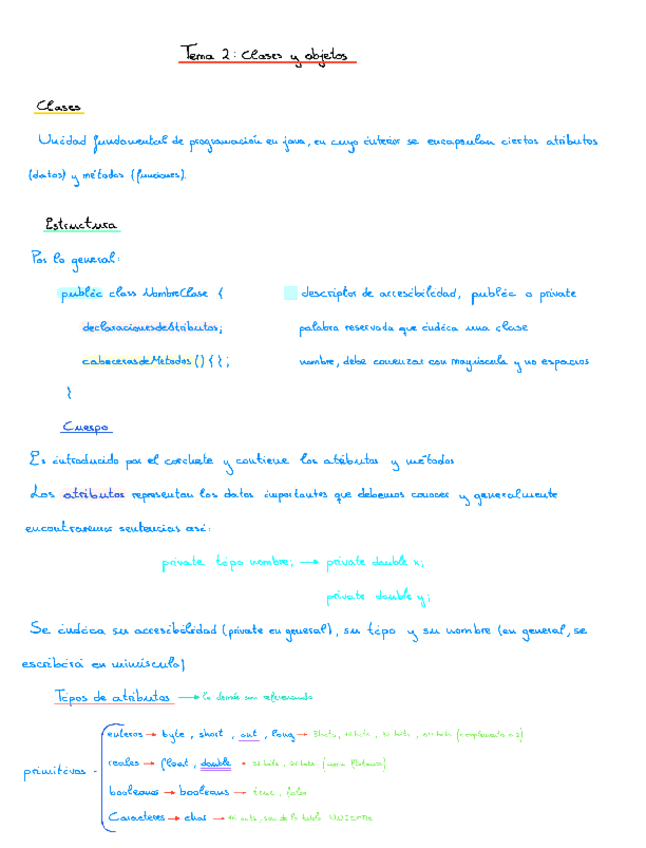 Tema 2: Clases y objetos
Clases
Unidad fundamental de programación en java, en cuyo interior se encapsulan ciertos atributos
(datos) y métodos (funciones).
Estructura
Por lo general:
public class NombreClase { descriptor de accesibilidad, public o private
declaracionesdeAtributos; palabra reservada que indica una clase
cabecerasdeMetodos () { } ; nombre, debe comenzar con mayúscula y no espacios
}
Cuerpo
Es introducido por el corchete y contiene los atributos y métodos
Los atributos representan los datos importantes que debemos conocer y generalmente
encontraremos sentencias así:
private tipo nombre; → private double x;
private double y;
Se indica su accesibilidad (private en general), su tipo y su nombre (en general, se
escribirá en minúsculo)
Tipos de atributos → lo demás son referenciado
primitivos
enteros → byte, short, int, long → 8 bits, 16 bits, 32 bits, 64 bits (complemento a 2)
reales → float, double → 32 bits, 64 bits (coma flotante)
booleanos → booleans → true, false
Caracteres → char → 16 bits, de la tabla UNICODE